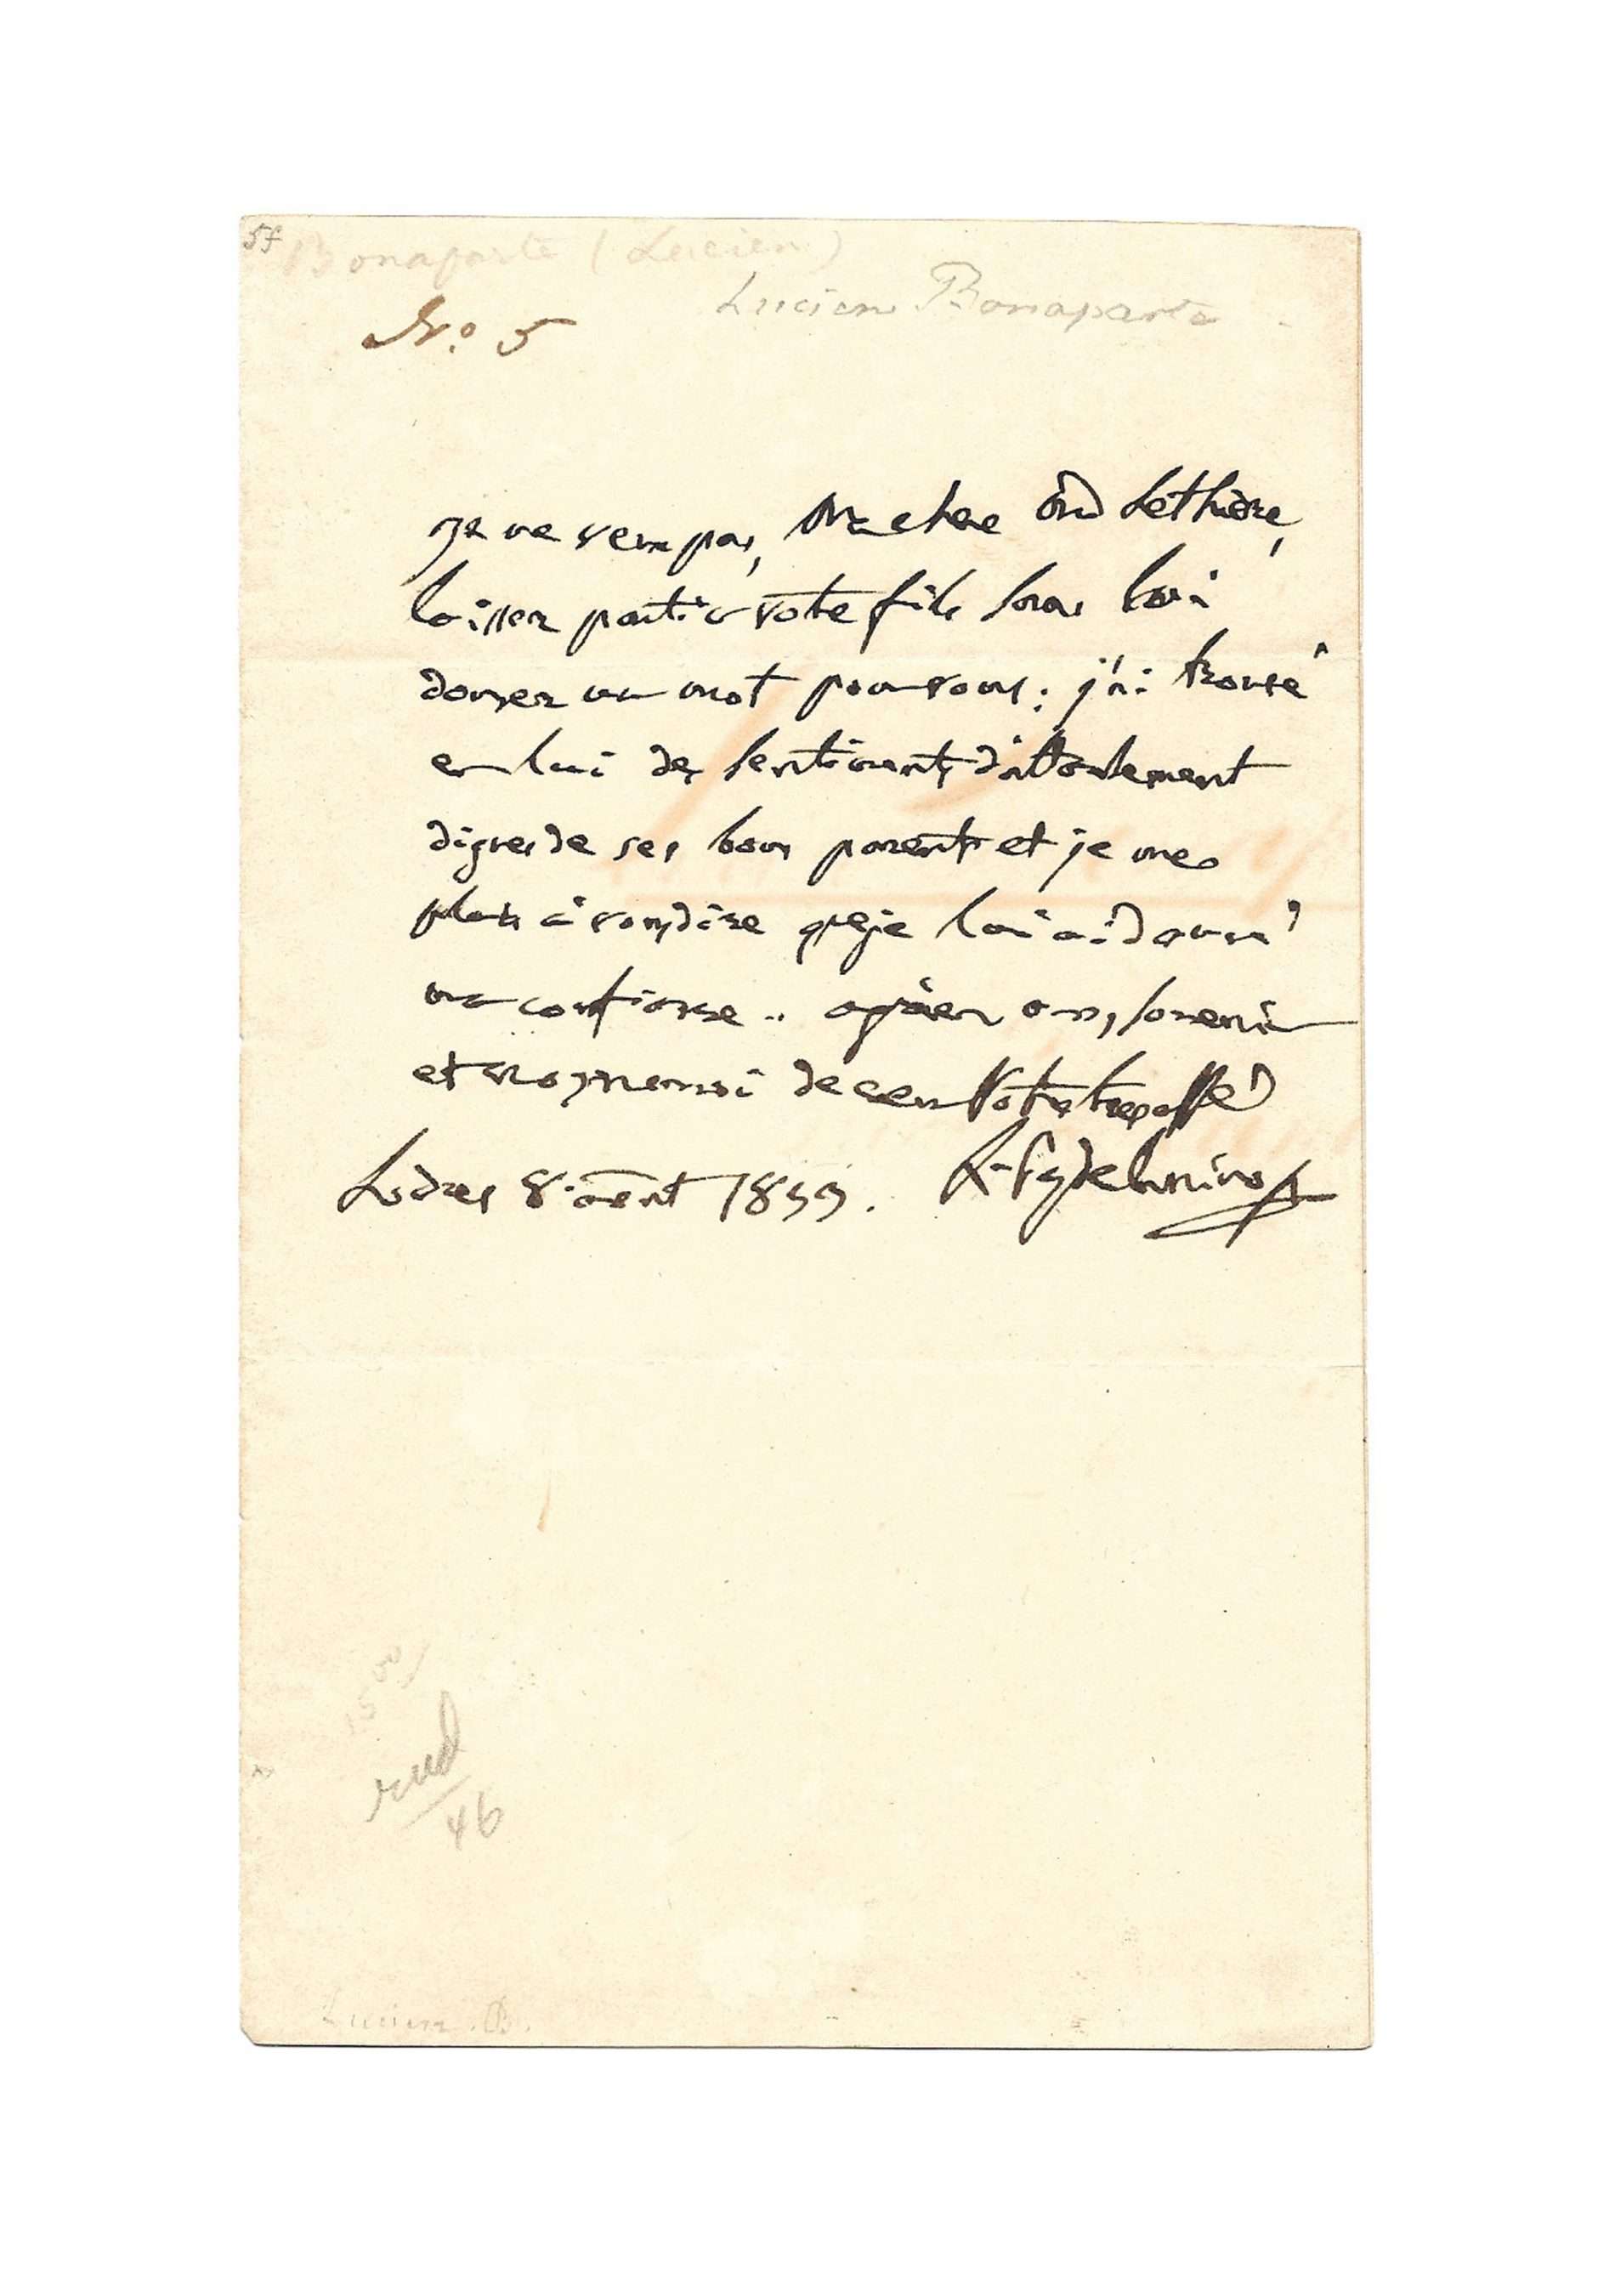 57
Bonaparte (Lucien)
Lucien Bonaparte
No. 5
Je ne veux pas, Ma chere Lethière,
laisser partir votre fils sans lui
donner un mot pour vous: j'ai trouvé
en lui des sentiments d'attachement
dignes de ses bons parents et je me
plais à vous dire que je lui ai donné
ma confiance .. agréez mon souvenir
et croyez moi de cœur Votre
Londres 8 août 1833.
46
Lucien. B.